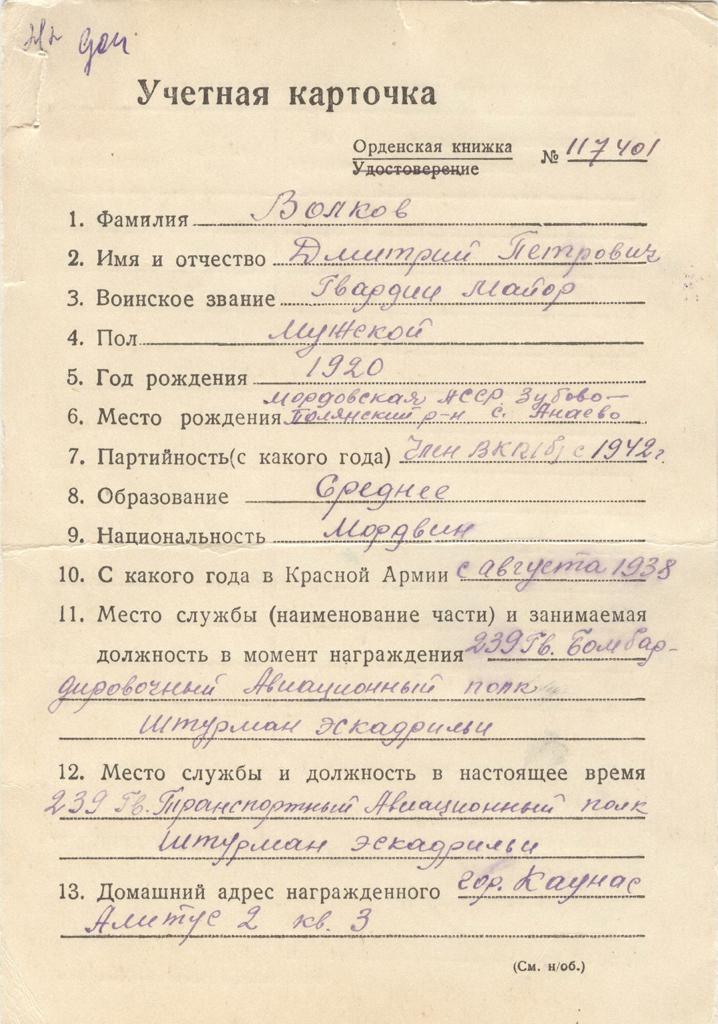 доп
Учетная карточка
Орденская книжка № 117401
Удостоверение
1. Фамилия Волков
2. Имя и отчество Дмитрий Петрович
3. Воинское звание Гвардии Майор
4. Пол Мужской
5. Год рождения 1920
Мордовская АССР, Зубово-
6. Место рождения Полянский р-н с. Анаево
7. Партийность(с какого года) Член ВКП(б) с 1942 г.
8. Образование Среднее
9. Национальность Мордвин
10. С какого года в Красной Армии с августа 1938
11. Место службы (наименование части) и занимаемая
должность в момент награждения 239 Гв. Бомбар-
дировочный Авиационный полк
Штурман эскадрильи
12. Место службы и должность в настоящее время
239 Гв. Транспортный Авиационный полк
Штурман эскадрильи
13. Домашний адрес награжденного гор. Каунас
Алитус 2 кв. 3
(См. н/об.)